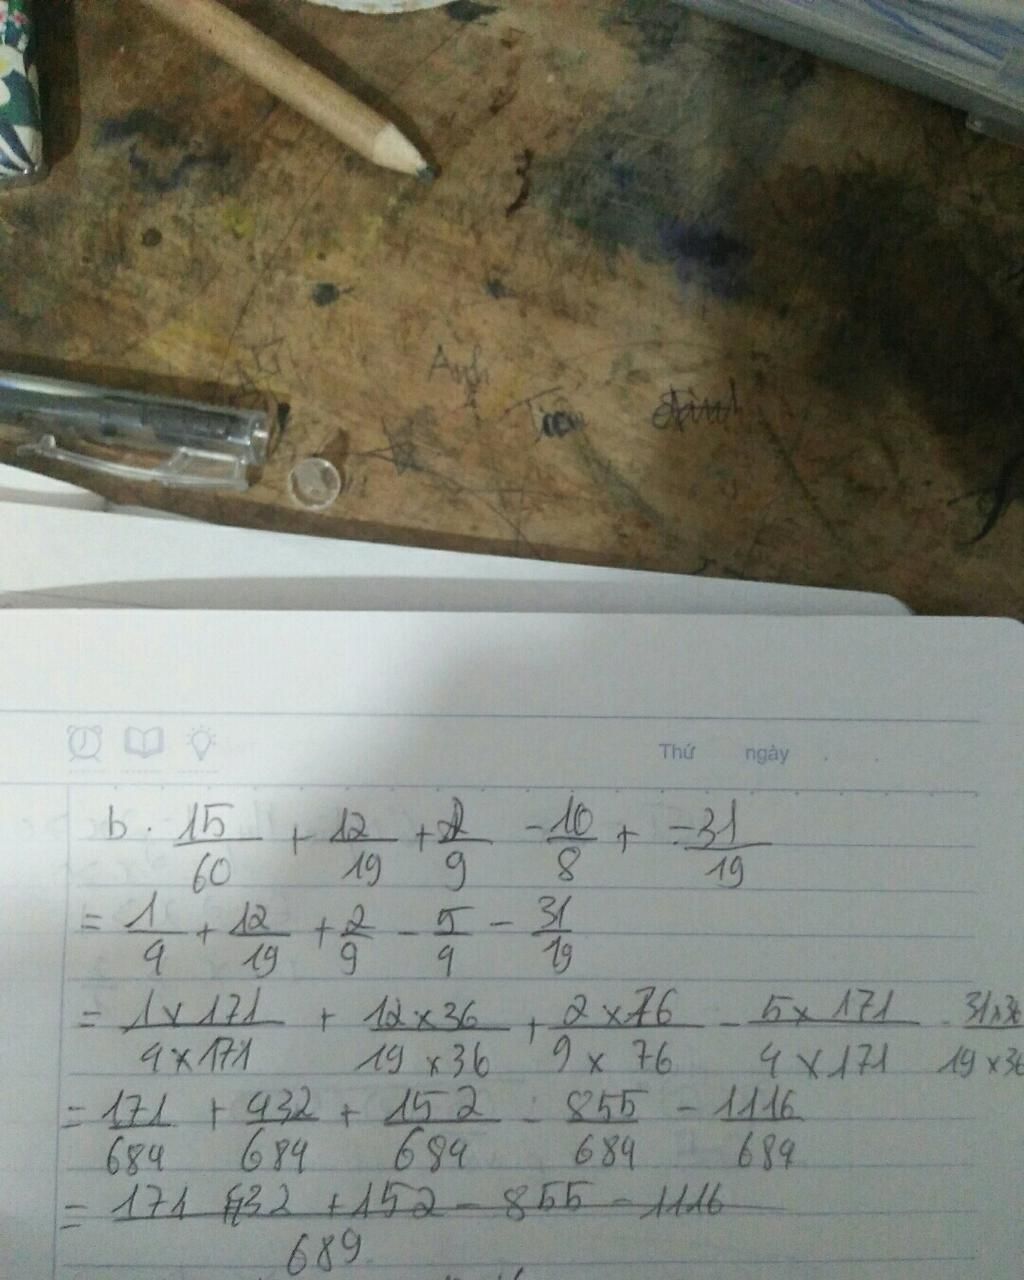 Anh
Thứ ngày
b. 15/60 + 12/19 + 2/9 - 10/8 + -31/19
= 1/4 + 12/19 + 2/9 - 5/4 - 31/19
= 1 x 171/4 x 171 + 12 x 36/19 x 36 + 2 x 76/9 x 76 - 5 x 171/4 x 171 - 31 x 36/19 x 36
= 171/684 + 432/684 + 152/684 - 855/684 - 1116/684
= 171 432 + 152 - 855 - 1116/689